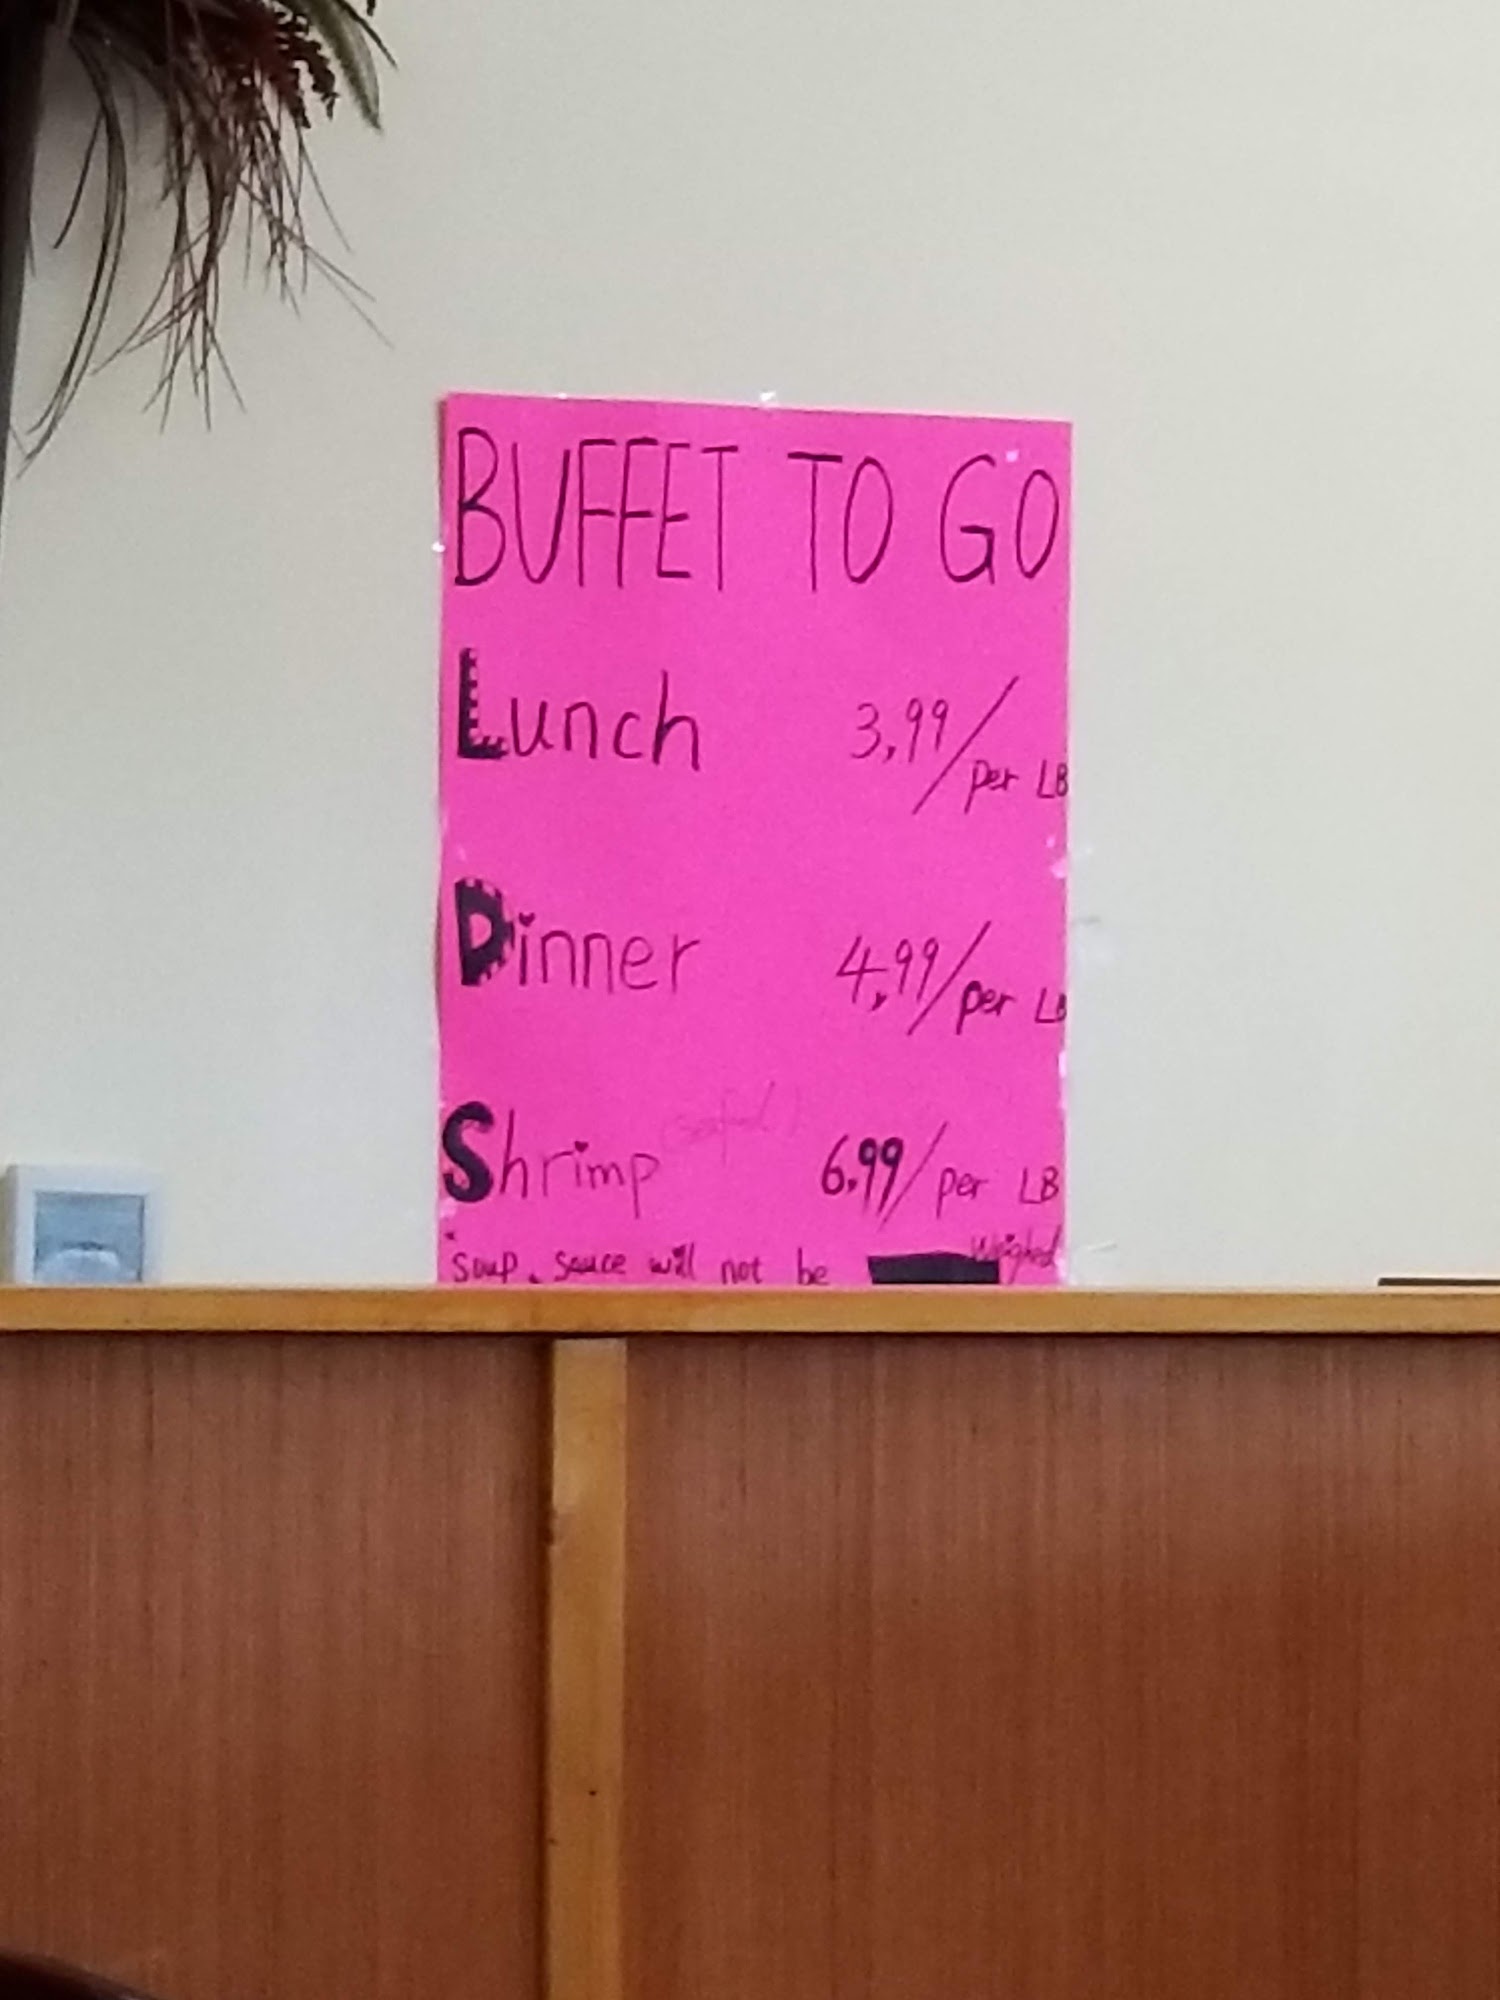 BUFFET TO GO
Lunch 3,99/per LB
Dinner 4,99/per LB
Shrimp 6.99/per LB
*soup, sauce will not be Weighed